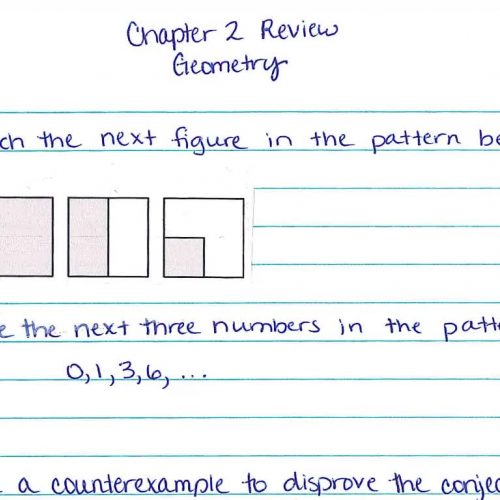 Chapter 2 Review
Geometry
ch the next figure in the pattern be
e the next three numbers in the patte
0, 1, 3, 6, ...
a counterexample to disprove the conjec